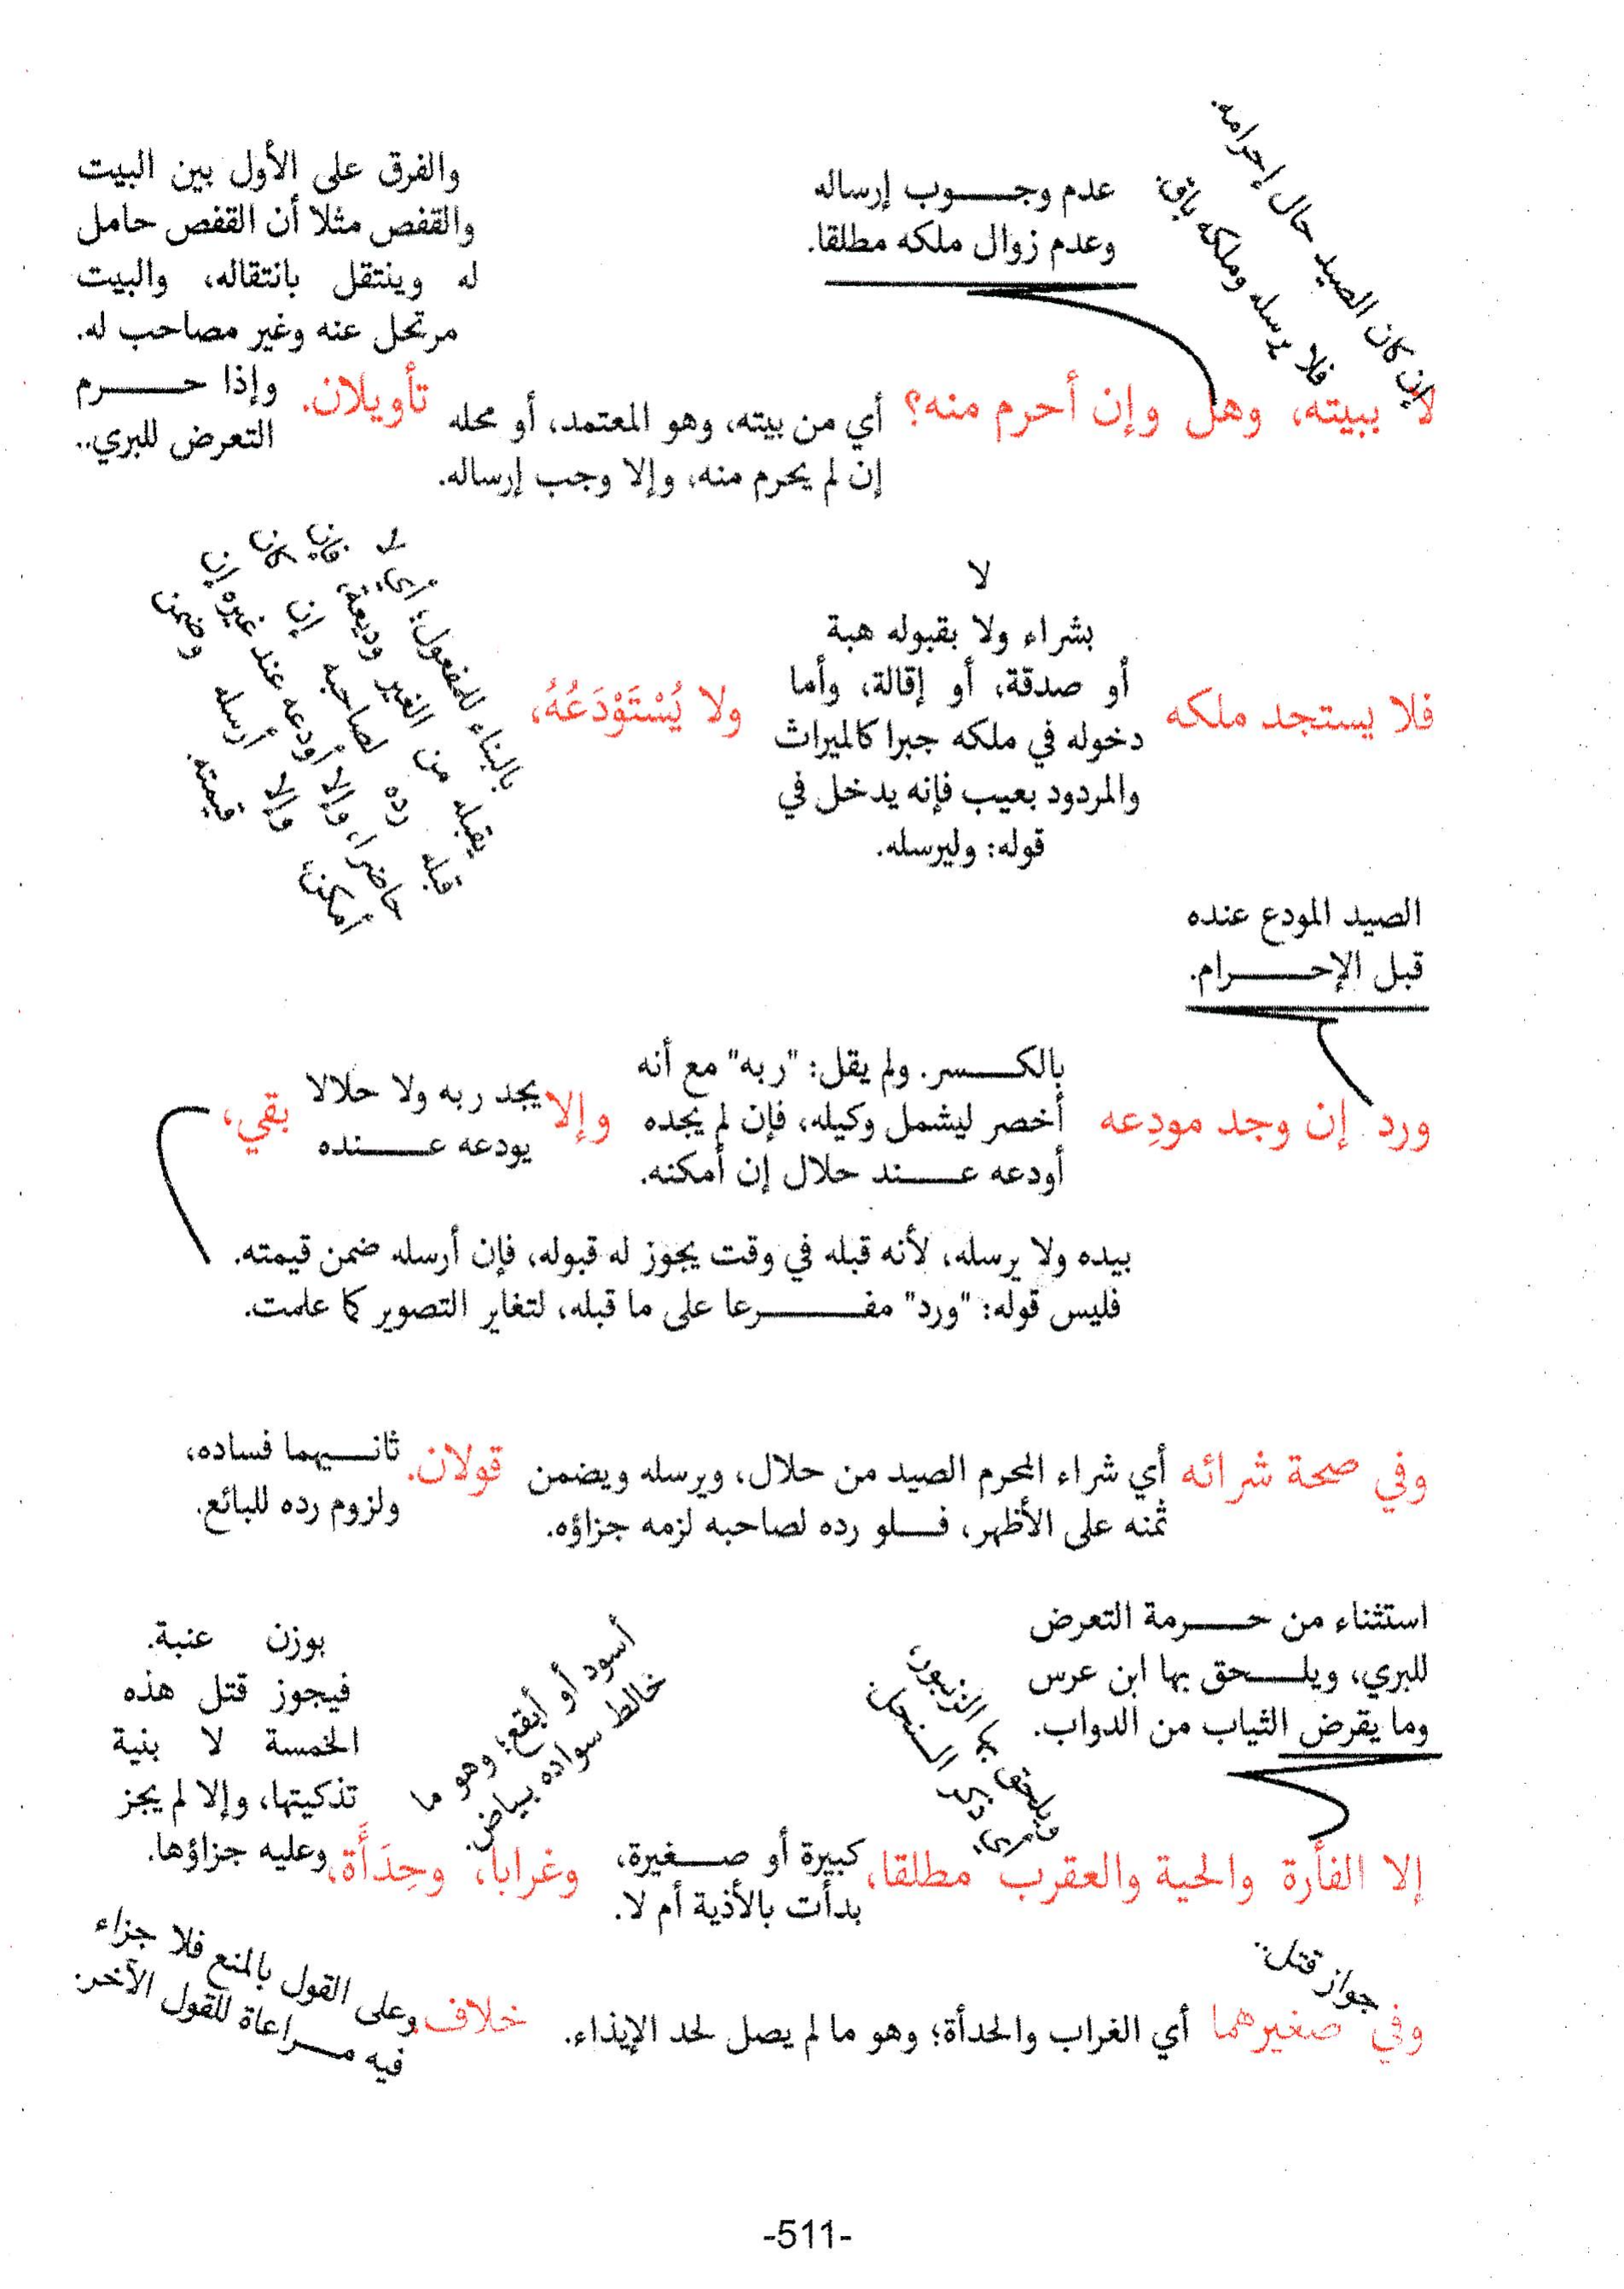 إن كان الصيد حال إحرامه.
فلا يرسله وملكه باق.
عدم وجوب إرساله
وعدم زوال ملكه مطلقا.
لا ببيته، وهل وإن أحرم منه؟
أي من بيته، وهو المعتمد، أو محله
إن لم يحرم منه، وإلا وجب إرساله.
تأويلان.
والفرق على الأول بين البيت
والقفص مثلا أن القفص حامل
له وينتقل بانتقاله، والبيت
مرتحل عنه وغير مصاحب له.
وإذا حرم
التعرض للبري..
فلا يستجد ملكه
لا
بشراء ولا بقبوله هبة
أو صدقة، أو إقالة، وأما
دخوله في ملكه جبرا كالميراث
والمردود بعيب فإنه يدخل في
قوله: وليرسله.
ولا يُسْتَوْدَعُهُ،
بالبناء للمفعول؛ أي لا
يقبله من الغير وديعة، فإن
قبله رده لصاحبه إن كان
حاضرا، وإلا أودعه عند غيره إن
أمكن، وإلا أرسله وضمن
قيمته.
الصيد المودع عنده
قبل الإحرام.
ورد إن وجد مودِعه
بالكسر. ولم يقل: "ربه" مع أنه
أخصر ليشمل وكيله، فإن لم يجده
أودعه عند حلال إن أمكنه.
وإلا
يجد ربه ولا حلالا
يودعه عنده
بقي،
بيده ولا يرسله، لأنه قبله في وقت يجوز له قبوله، فإن أرسله ضمن قيمته.
فليس قوله: "ورد" مفرعا على ما قبله، لتغاير التصوير كما علمت.
وفي صحة شرائه
أي شراء المحرم الصيد من حلال، ويرسله ويضمن
ثمنه على الأظهر، فلو رده لصاحبه لزمه جزاؤه.
قولان.
ثانيهما فساده،
ولزوم رده للبائع.
استثناء من حرمة التعرض
للبري، ويلحق بها ابن عرس
وما يقرض الثياب من الدواب.
إلا الفأرة والحية والعقرب مطلقا،
ويلحق بها الزنبور،
أي ذكر النحل.
كبيرة أو صغيرة،
بدأت بالأذية أم لا.
وغرابا،
أسود أو أبقع؛ وهو ما
خالط سواده بياض.
وحِدَأَة،
بوزن عنبة.
فيجوز قتل هذه
الخمسة لا بنية
تذكيتها، وإلا لم يجز
وعليه جزاؤها.
جواز قتل..
وفي صغيرهما
أي الغراب والحدأة؛ وهو ما لم يصل لحد الإيذاء.
خلاف.
وعلى القول بالمنع فلا جزاء
فيه مراعاة للقول الآخر.
-511-